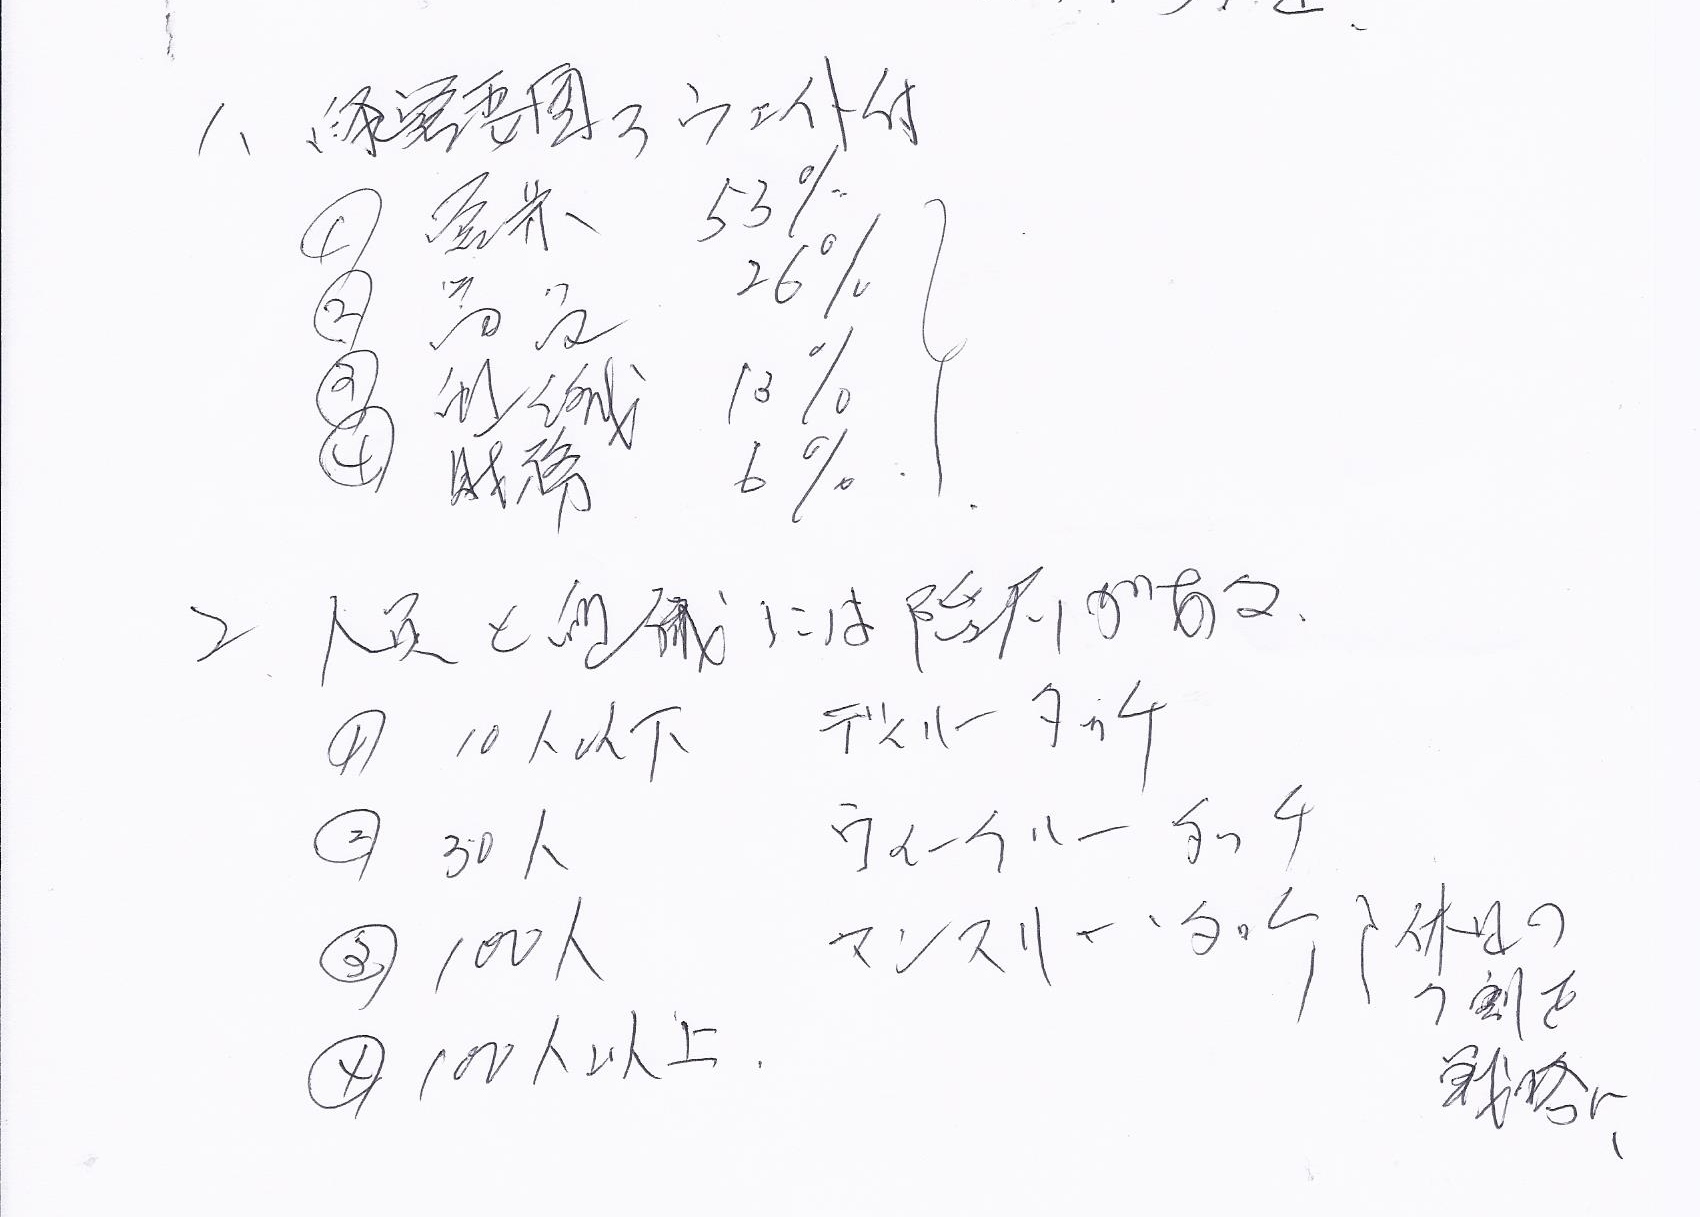 1、経営要因のウェイト付
① 53%
② 26%
③ 組織 13%
④ 財務 6%
2 人員と組織には原則がある、
① 10人以下 デイリータッチ
② 30人 ウィークリータッチ
③ 100人 マンスリータッチ 休日の
7割を
④ 100人以上.
戦略に、